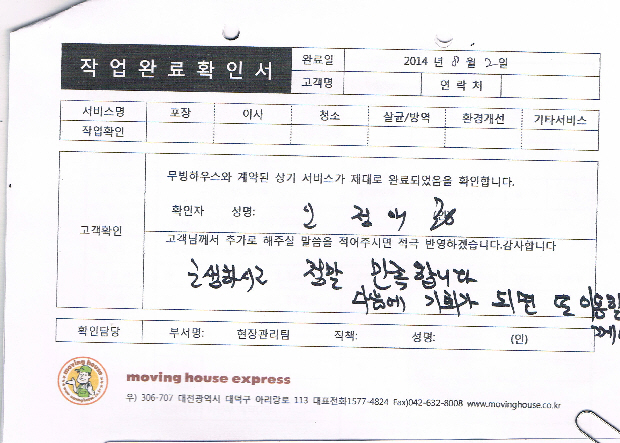 작업완료확인서
완료일 2014 년 8 월 2 일
고객명 연 락 처
서비스명 포장 이사 청소 살균/방역 환경개선 기타서비스
작업확인
무빙하우스와 계약된 상기 서비스가 제대로 완료되었음을 확인합니다.
고객확인
확인자 성명: 인 정 애
고객님께서 추가로 해주실 말씀을 적어주시면 적극 반영하겠습니다.감사합니다
정말 만족합니다
다음에 기회가 되면 또 이용할
께
확인담당 부서명: 현장관리팀 직책: 성명: (인)
moving house
moving house express
www.movinghouse.co.kr
우) 306-707 대전광역시 대덕구 아리랑로 113 대표전화1577-4824 Fax)042-632-8008 www.movinghouse.co.kr